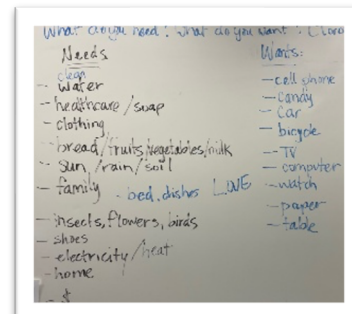 What do you need? What do you want?
Needs
clean
- water
- healthcare/soap
- clothing
- bread/fruits/vegetables/milk
- sun/rain/soil
- family - bed, dishes LOVE
- insects, flowers, birds
- shoes
- electricity/heat
- home
- $
Wants:
- cell phone
- candy
- car
- bicycle
- TV
- computer
- watch
- paper
- table